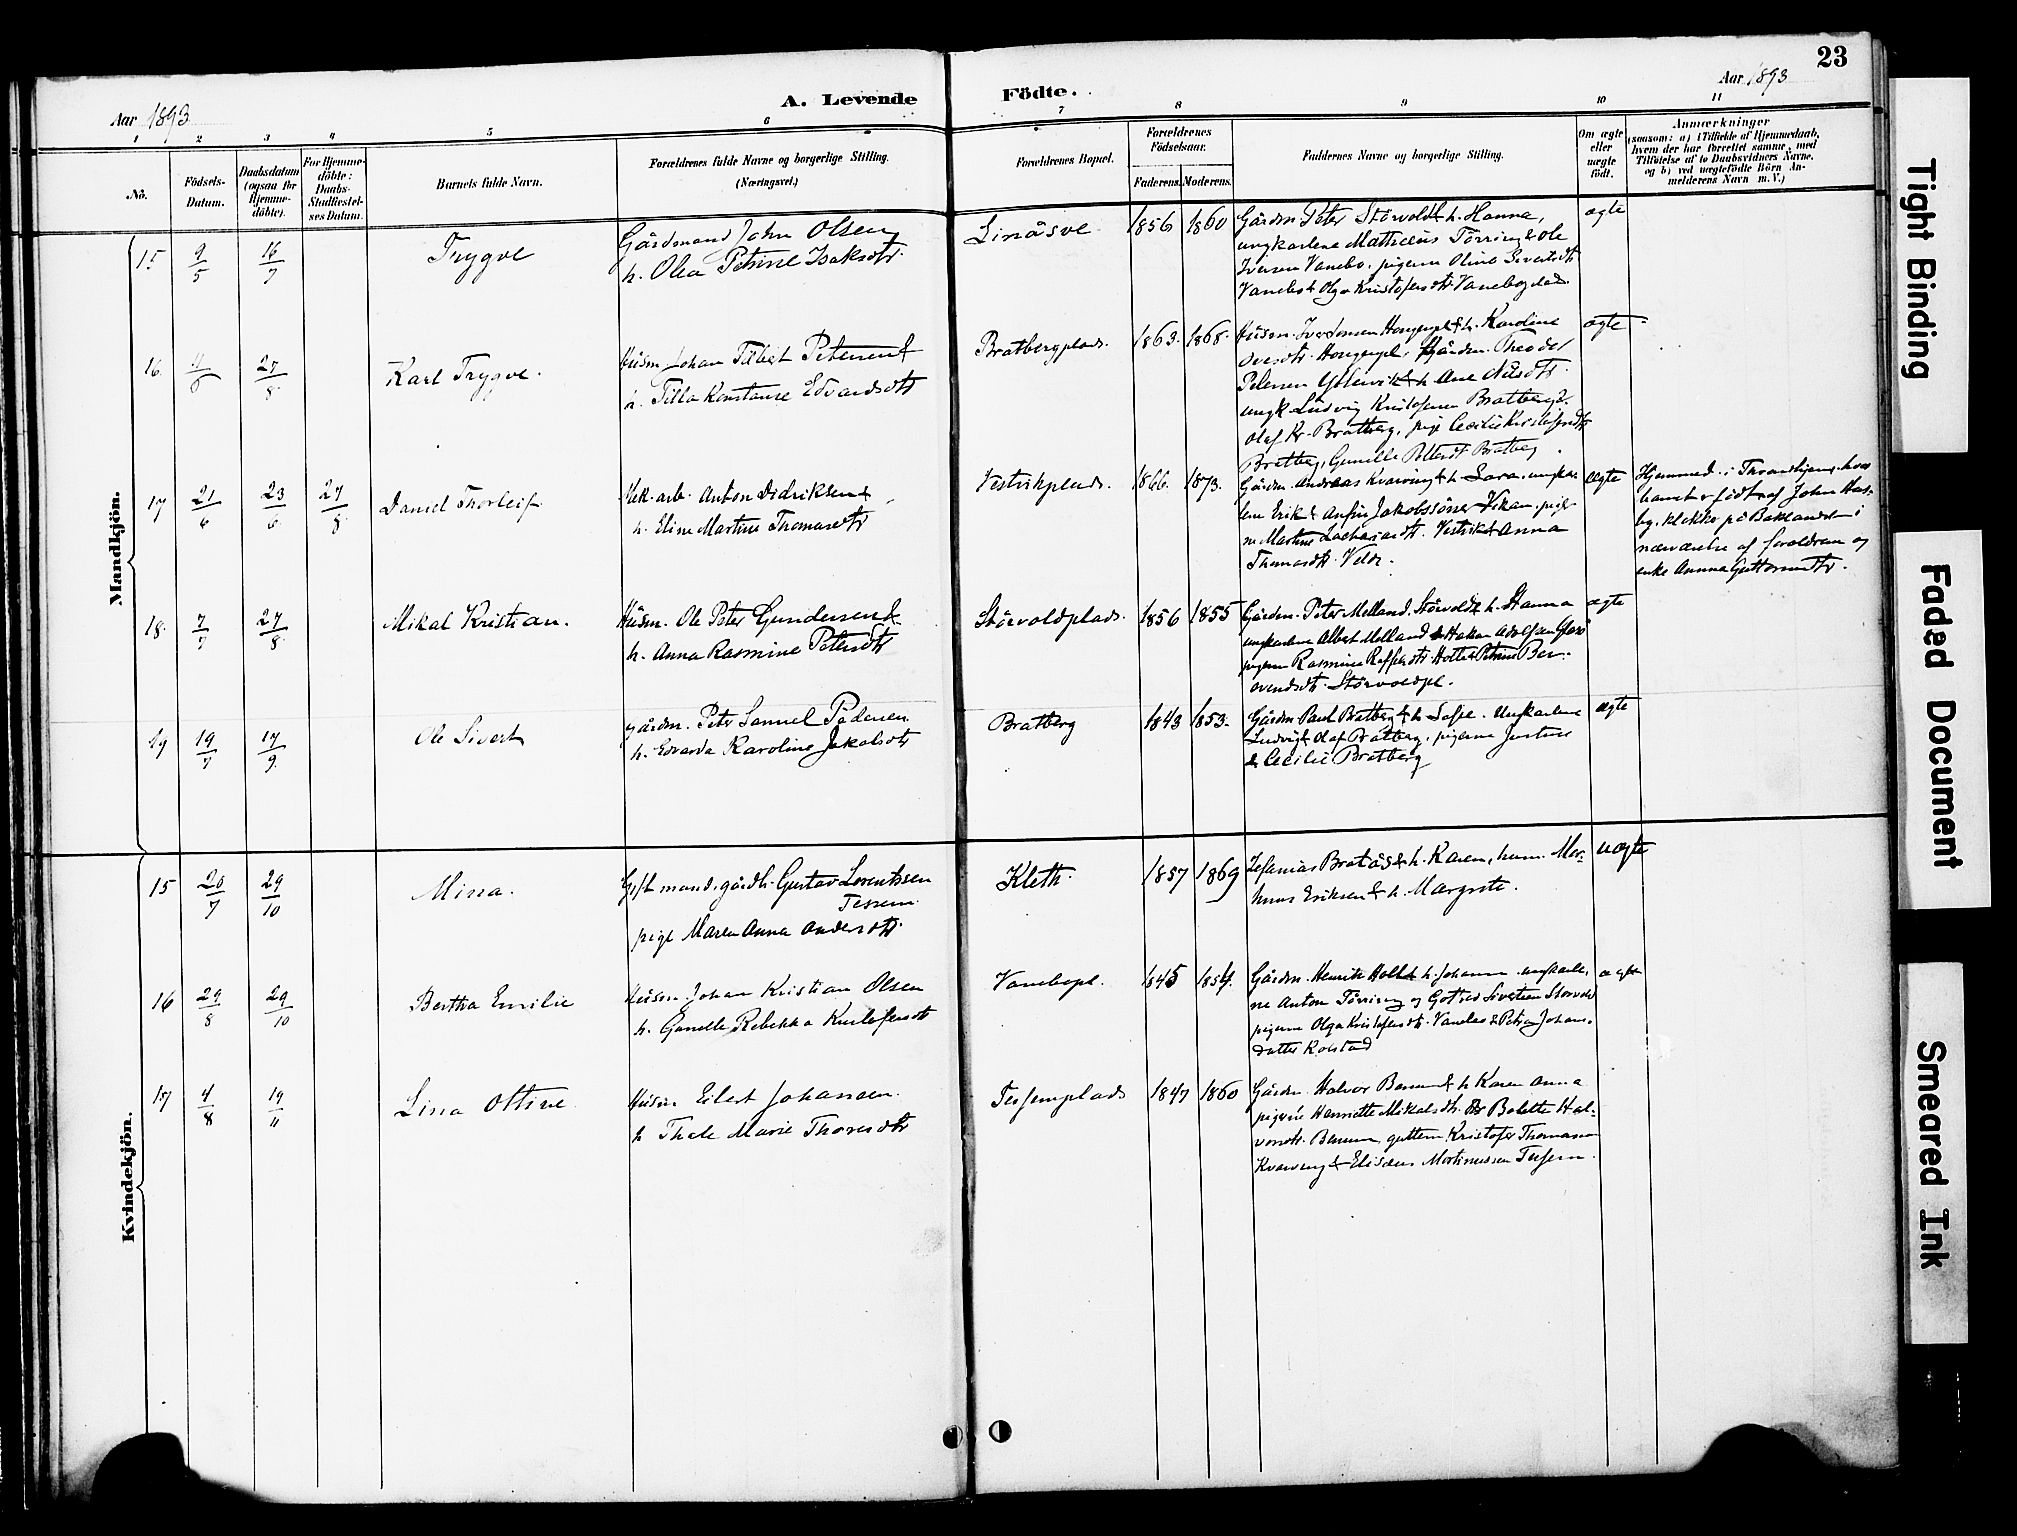 23
Aar 1893
A. Levende
Födte.
Aar 1893
1 2 3 4 5 6 7 8 9 10 11
No.
Födsels-
Datum.
Daabsdatum
(ogsaa for
Hjemme-
döbte).
For Hjemme-
döbte:
Daabs-
Stadfæstel-
ses Datum.
Barnets fulde Navn.
Forældrenes fulde Navne og borgerlige Stilling.
(Næringsvei.)
Forældrenes Bopæl.
Forældrenes
Födselsaar.
Faderens. Moderens.
Faddernes Navne og borgerlige Stilling.
Om ægte
eller
uægte
födt.
Anmærkninger
(saasom: a) i Tilfælde af Hjemmedaab,
hvem der har forrettet samme, med
Tilföielse af to Daabsvidners Navne,
og b) ved uægtefödte Börn An-
melderens Navn m. V.)
Mandkjön.
15 9/5 16/7 Trygve
Gårdmand John Olsen
h. Olea Petrine Isaksdtr.
Linåsve 1856 1860
Gårdm Peter Störvold & h. Hanna,
ungkarlene Mathæus Törring & Ole
Iversen Vanebo, pigerne Oline Sivertsdtr
Vanebo & Olga Kristofersdtr
ægte
16 27/8 Karl Trygve.
Husm. Johan Petersen &
h. Konstanse Edvardsdtr
Bratbergplads. 1863. 1868.
Husm. & h. Karoline
Petersen & h. Ane
ungk Ludvig Kristofersen Bratberg &
Olaf Kr. Bratberg, pige
Bratberg, Gunelle Bratberg
ægte
17 21/6 23/6 27/8 Daniel Thorleif
arb. Anton Didriksen &
h. Eline Martine Thomasdtr
Vestvikplads. 1866. 1873.
Gårdm. Andreas Kvarving & h. Sara. ungkar
lene Erik & Jakobssöner Vikan. piger
ne Martine Zachariasdtr. Vestvik & Anna
Thomasdtr.
ægte
Hjemmed. i Throndhjem, hvor
barnet er födt af John
klokker på Baklandet i
nærværelse af forældrene og
enke Guttormsdtr.
18. 7/7 27/8 Mikal Kristian.
Husm. Ole Peter Gundersen &
h. Anna Rasmine Petersdtr
Störvoldplads. 1856 1855
Gårdm. Peter Melland. Störvold & h. Hanna
ungkarlene Albert Melland & Hakon Adolfsen
pigerne Rasmine Holte & Petrine Ber-
Störvoldpl.
ægte
19 19/7 17/9 Ole Sivert
gårdm. Peter Samuel Pedersen
h. Edvarda Karoline Jakobsdtr
Bratberg 1843 1853.
Gårdm Paul Bratberg & h. Ungkarlene
Ludvig & Olaf Bratberg, pigerne Justine
& Cecilie Bratberg
ægte
Kvindekjön.
15 20/7 29/10 Mina.
Gift mand, gårdb. Gustav Lorentssen
Tessem
pige Maren Anna Andersdtr.
Kleth. 1857 1869
Zefanias Bratås & h. Karen, husm. Mar-
Eriksen & h. Margrete.
uægte
16 29/8 29/10 Bertha Emilie
Husm Johan Kristian Olsen
h. Gunelle Rebekka Kristofersdtr
Vanebopl. 1845 1854.
Gårdm. Henrik Holte & h. Johanna. ungkarle-
ne Anton Törring og Sivertsen
pigerne Olga Kristofersdtr. Vanebo & Petra Johans-
datter
ægte
17 4/8 19/11 Lina Ottine
Husm Eilert Johansen.
h Thale Marie Thoresdtr
Tessemplads 1847 1860
Gårdm. Halvor & h Karen Anna
pigerne Henriette Mikalsdtr. & Bolette Hal-
vorsdtr. gutterne Kristofer Thomassen
Kvarving & Elisæus Martinussen Tessem.
Tight Binding
Faded Document
Smeared Ink